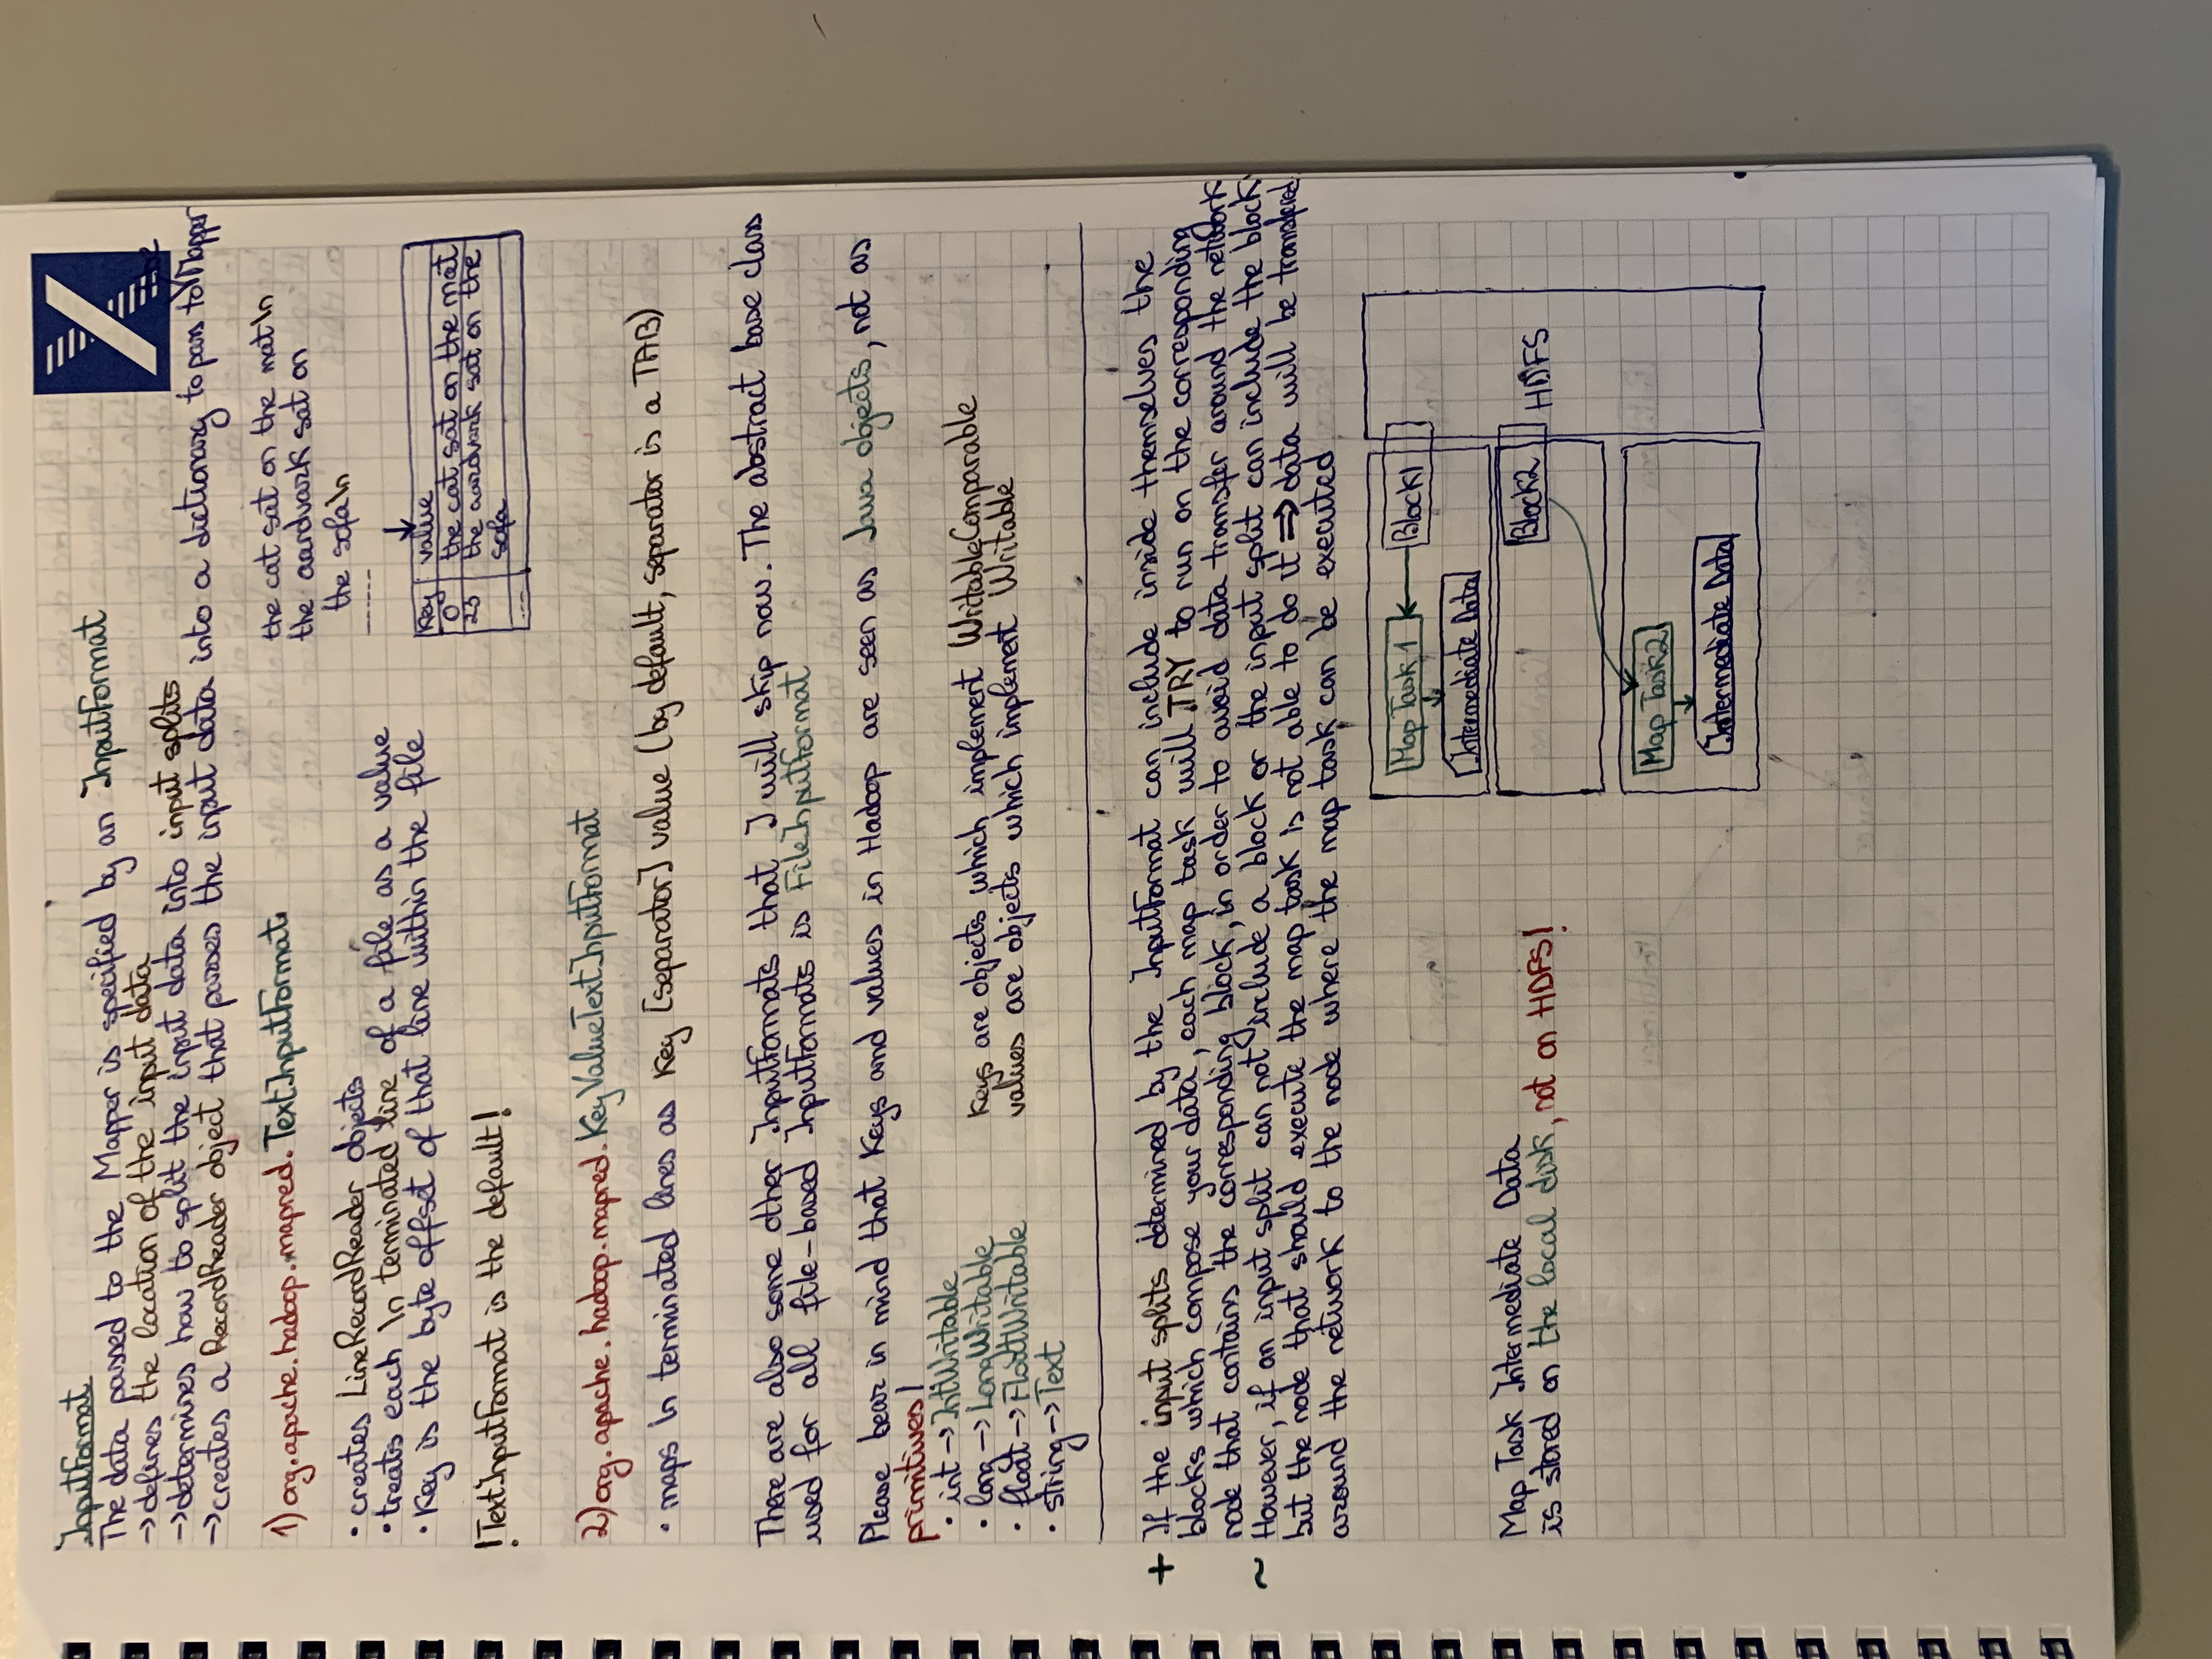 InputFormat
The data passed to the Mapper is specified by an InputFormat
->defines the location of the input data
->determines how to split the input data into input splits
->creates a RecordReader object that parses the input data into a dictionary to pass to the Mapper
1) org.apache.hadoop.mapred.TextInputFormat
• creates LineRecordReader objects
• treats each \n terminated line of a file as a value
• Key is the byte offset of that line within the file
!TextInputFormat is the default!
the cat sat on the mat\n
the aardvark sat on
the sofa\n
------
Key value
0 the cat sat on the mat
23 the aardvark sat on the
sofa
...
2) org.apache.hadoop.mapred.KeyValueTextInputFormat
• maps \n terminated lines as Key [separator] value (by default, separator is a TAB)
There are also some other InputFormats that I will skip now. The abstract base class
used for all file-based InputFormats is FileInputFormat
Please bear in mind that Keys and values in Hadoop are seen as Java objects, not as
primitives!
• int -> IntWritable
• long -> LongWritable
• float -> FloatWritable
• string -> Text
Keys are objects which implement WritableComparable
values are objects which implement Writable
+ If the input splits determined by the InputFormat can include inside themselves the
blocks which compose your data, each map task will TRY to run on the corresponding
node that contains the corresponding block, in order to avoid data transfer around the network
~ However, if an input split can not include a block or the input split can include the block
but the node that should execute the map task is not able to do it => data will be transfered
around the network to the node where the map task can be executed
Map Task Intermediate Data
is stored on the local disk, not on HDFS!
Map Task 1
Block1
Intermediate Data
Block2
HDFS
Map Task2
Intermediate Data